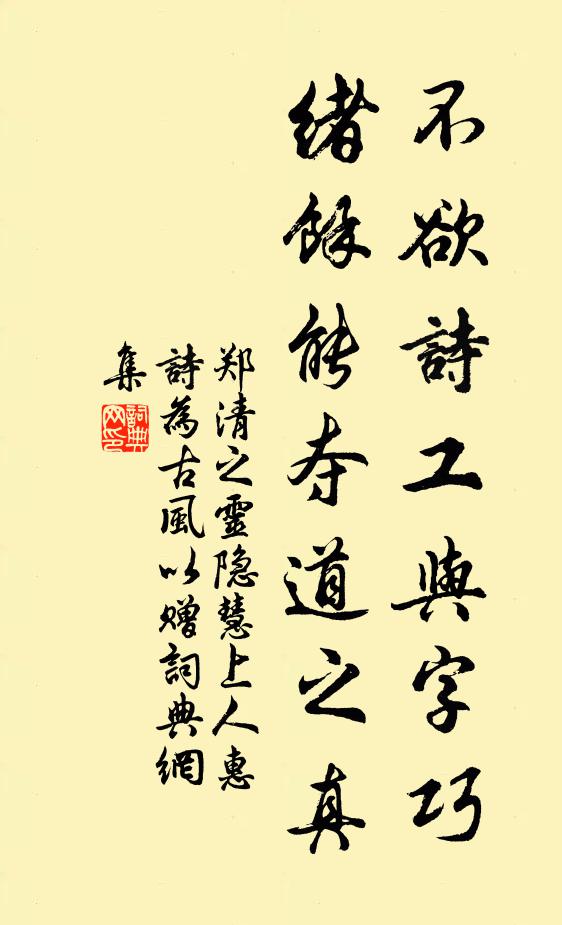 不欲詩工與字巧
緒餘能夺道之真
郑清之靈隐慧上人惠
詩為古風以赠詞典網
集
詞典
网印